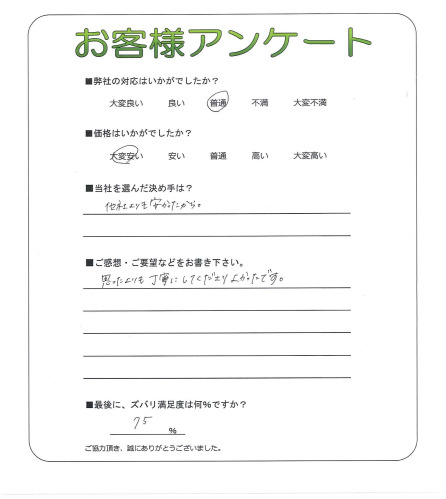 お客様アンケート
■弊社の対応はいかがでしたか?
大変良い 良い 普通 不満 大変不満
■価格はいかがでしたか?
大変安い 安い 普通 高い 大変高い
■当社を選んだ決め手は?
他社よりも安かったから。
■ご感想・ご要望などをお書き下さい。
思ったよりも丁寧にしてくださりよかったです。
■最後に、ズバリ満足度は何%ですか?
75 %
ご協力頂き、誠にありがとうございました。